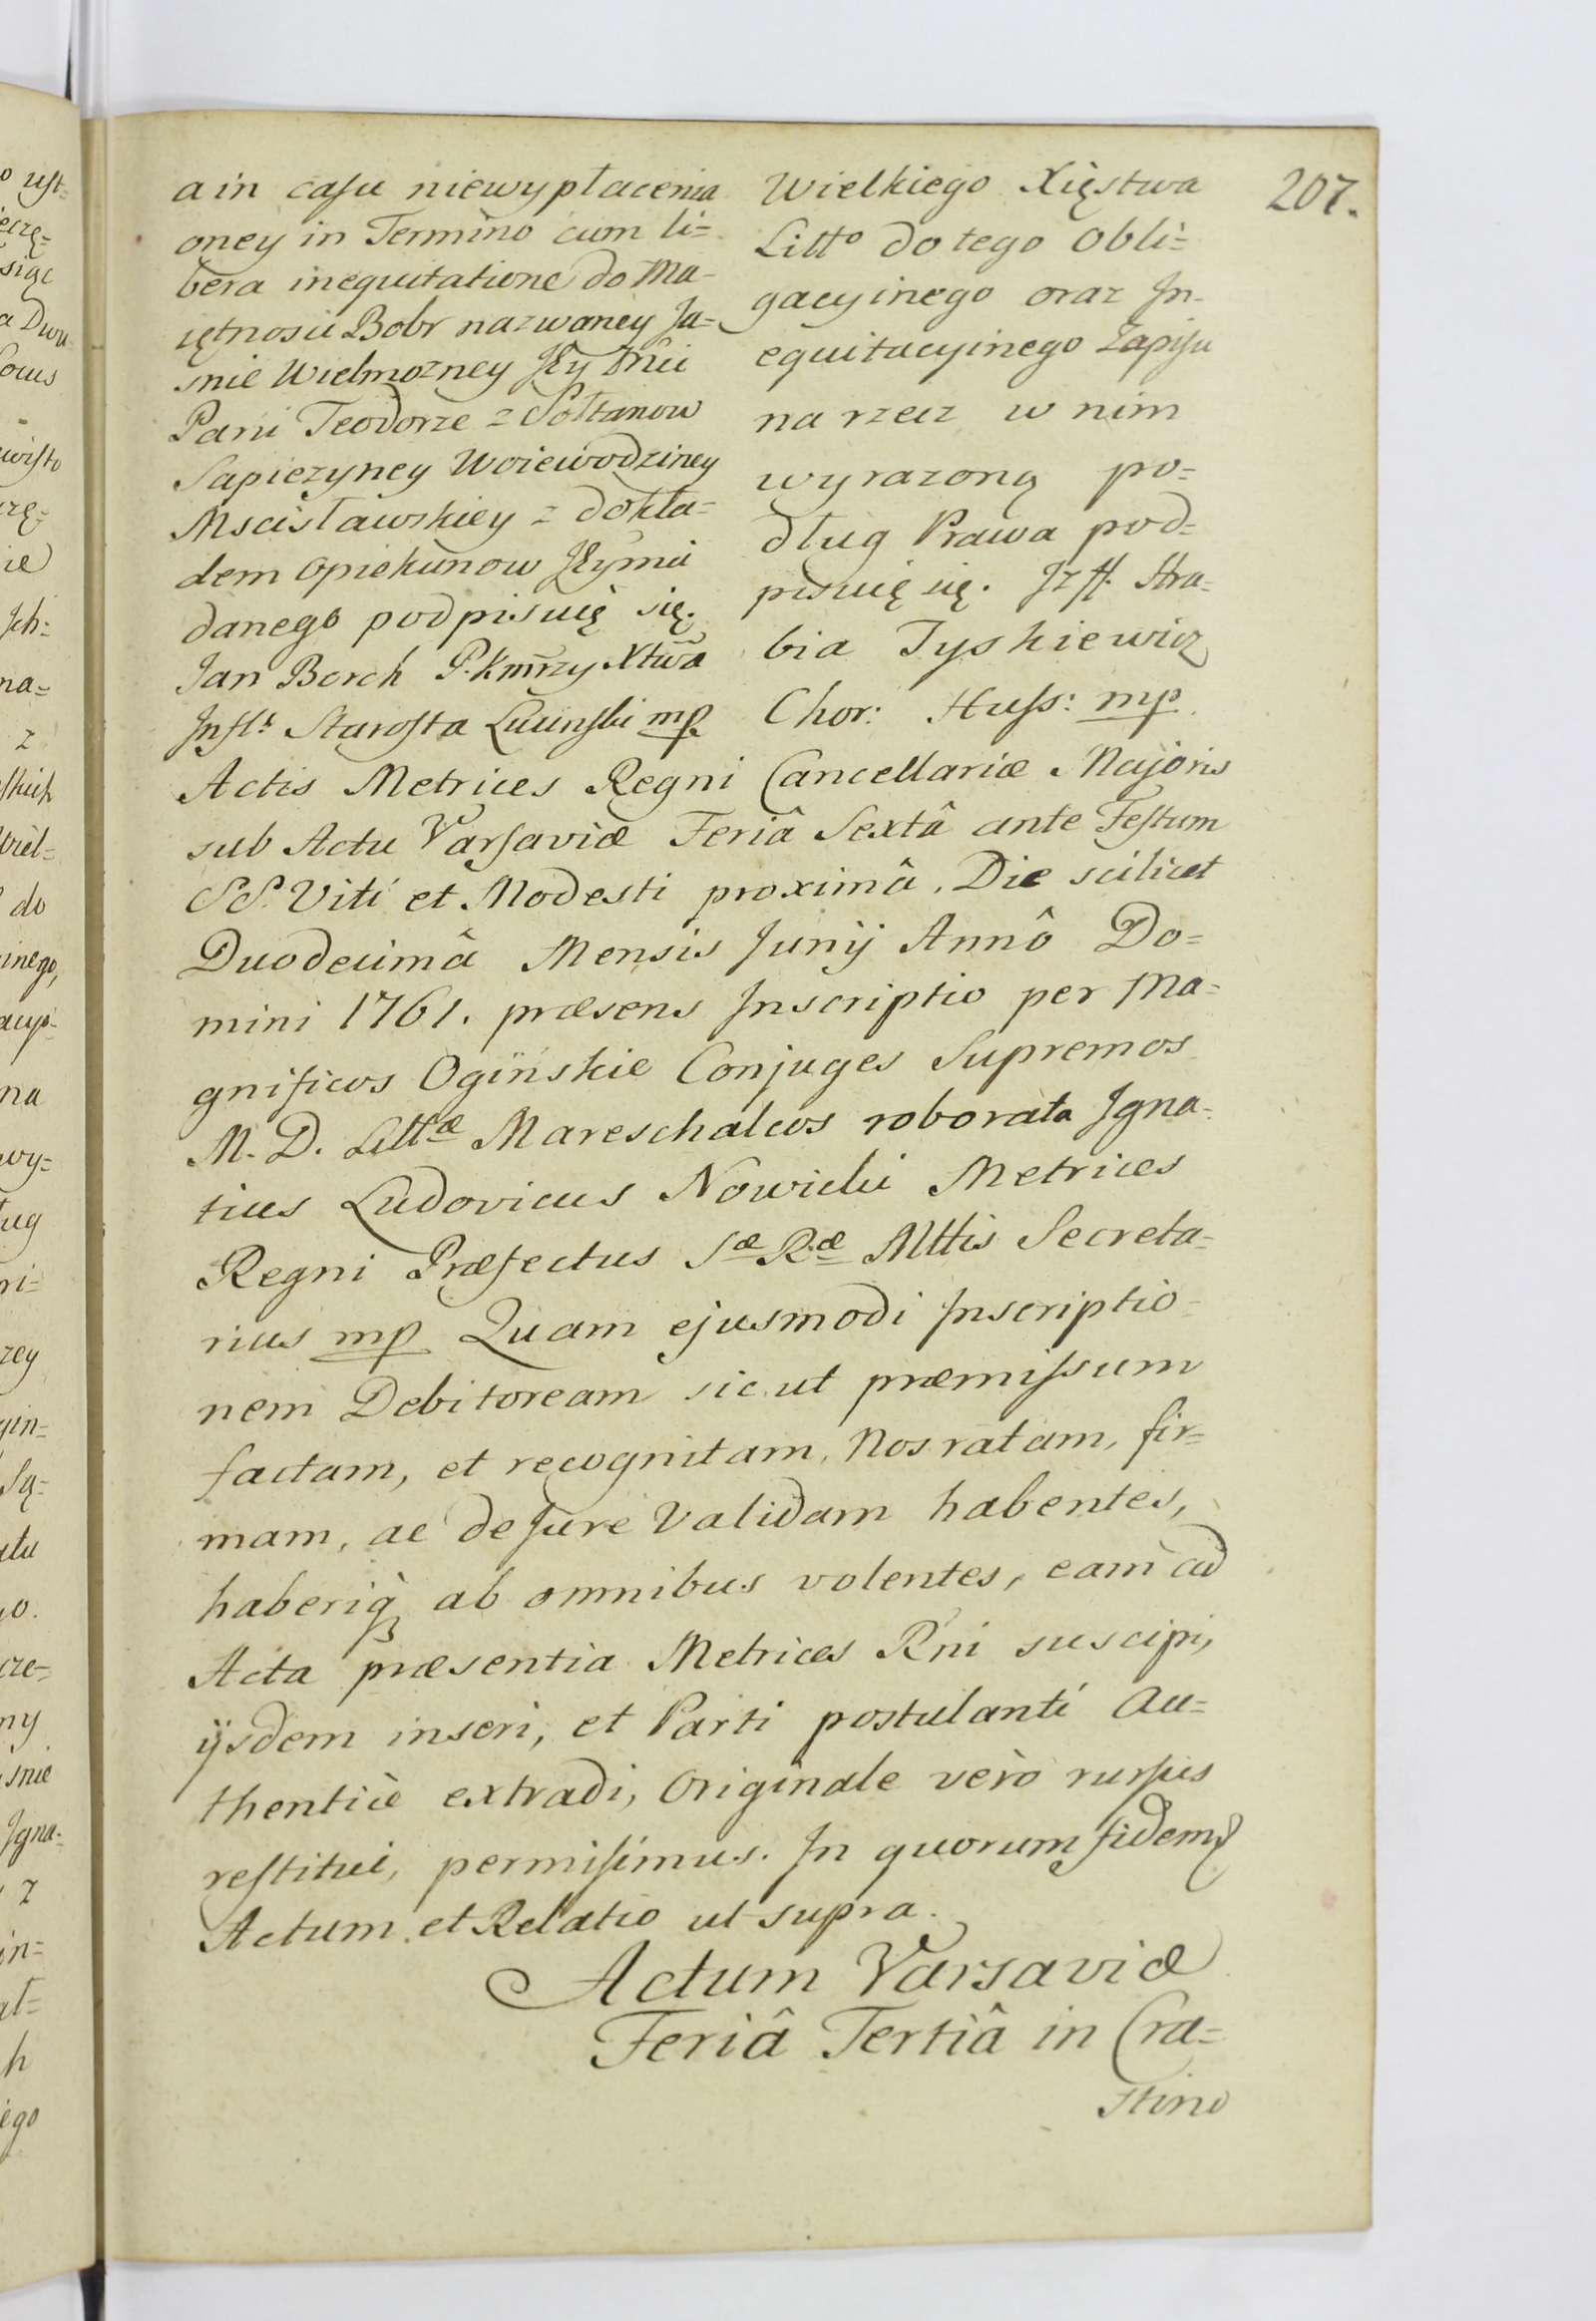 207.
a in casu niewypłacenia
oney in Termino cum li=
bera inequitatione do Ma-
iętnosci Bobr nazwaney Ja=
snie Wielmozney JEy Mci
Pani Teodorze z Sołtanow
Sapiezyney Woiewodziney
Mscisławskiey z dokła=
dem Opiekunow JEymci
danego podpisuię się.
Jan Borch P. Kmrzy Xtwa
Infl: Starosta Lucinski mp.
Wielkiego Xięstwa
Litto do tego Obli=
gacyinego oraz In-
equitacyinego Zapisu
na rzecz w nim
wyrazoną po=
dług Prawa pod=
pisuię się. Jzff. Hra=
bia Tyszkiewicz
Chor: Huss: mp.
Actis Metrices Regni Cancellariæ Majoris
sub Actu Varsaviæ Feriâ Sextâ ante Festum
SS. Viti et Modesti proximâ, Die scilicet
Duodecimâ Mensis Junij Annô Do=
mini 1761. præsens Inscriptio per Ma=
gnificos Ogińskie Conjuges Supremos
M. D. Littæ Mareschalcos roborata Igna=
tius Ludovicus Nowicki Metrices
Regni Præfectus Sæ Ræ Mttis Secreta=
rius mp Quam ejusmodi Inscriptio-
nem Debitoream sic ut præmissum
factam, et recognitam, Nos ratam, fir=
mam, ac de Jure Validam habentes,
haberiq3 ab omnibus volentes, eam ad
Acta præsentia Metrices Rni suscipi,
ijsdem inseri, et Parti postulanti Au=
thenticè extradi, Originale verò rursus
restitui, permisimus. In quorum fidem
Actum et Relatio ut supra.
Actum Varsaviæ
Feriâ Tertiâ in Cra=
stino